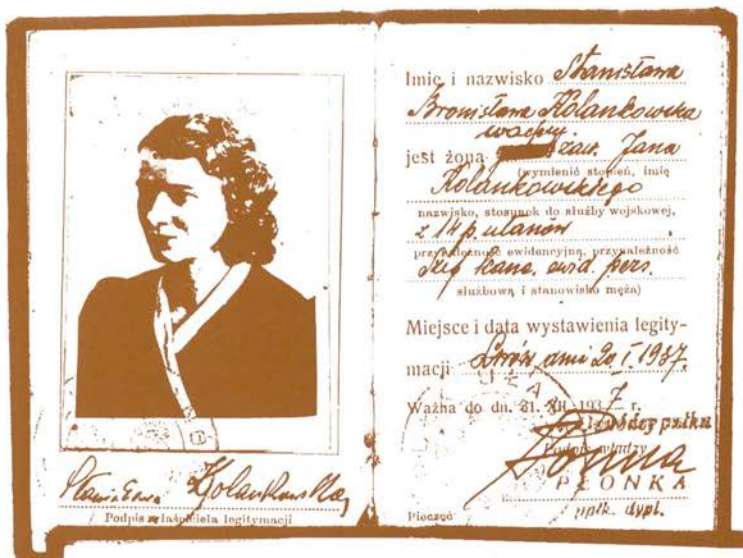 Stanisława Kolankowska
Podpis właściciela legitymacji
Imię i nazwisko Stanisława
Bronisława Kolankowska
wachm.
jest żoną zaw. Jana
(wymienić stopień, imię
Kolankowskiego
nazwisko, stosunek do służby wojskowej,
z 14 p. ułanów
przynależność ewidencyjną, przynależność
Szef kanc. ewid. pers.
służbową i stanowisko męża)
Miejsce i data wystawienia legity-
macji Lwów, dnia 20 I. 1937.
Ważna do dn. 31. XII. 1937 r.
dowódcy pułku
Podpis władzy
PŁONKA
Pieczęć ppłk. dypl.